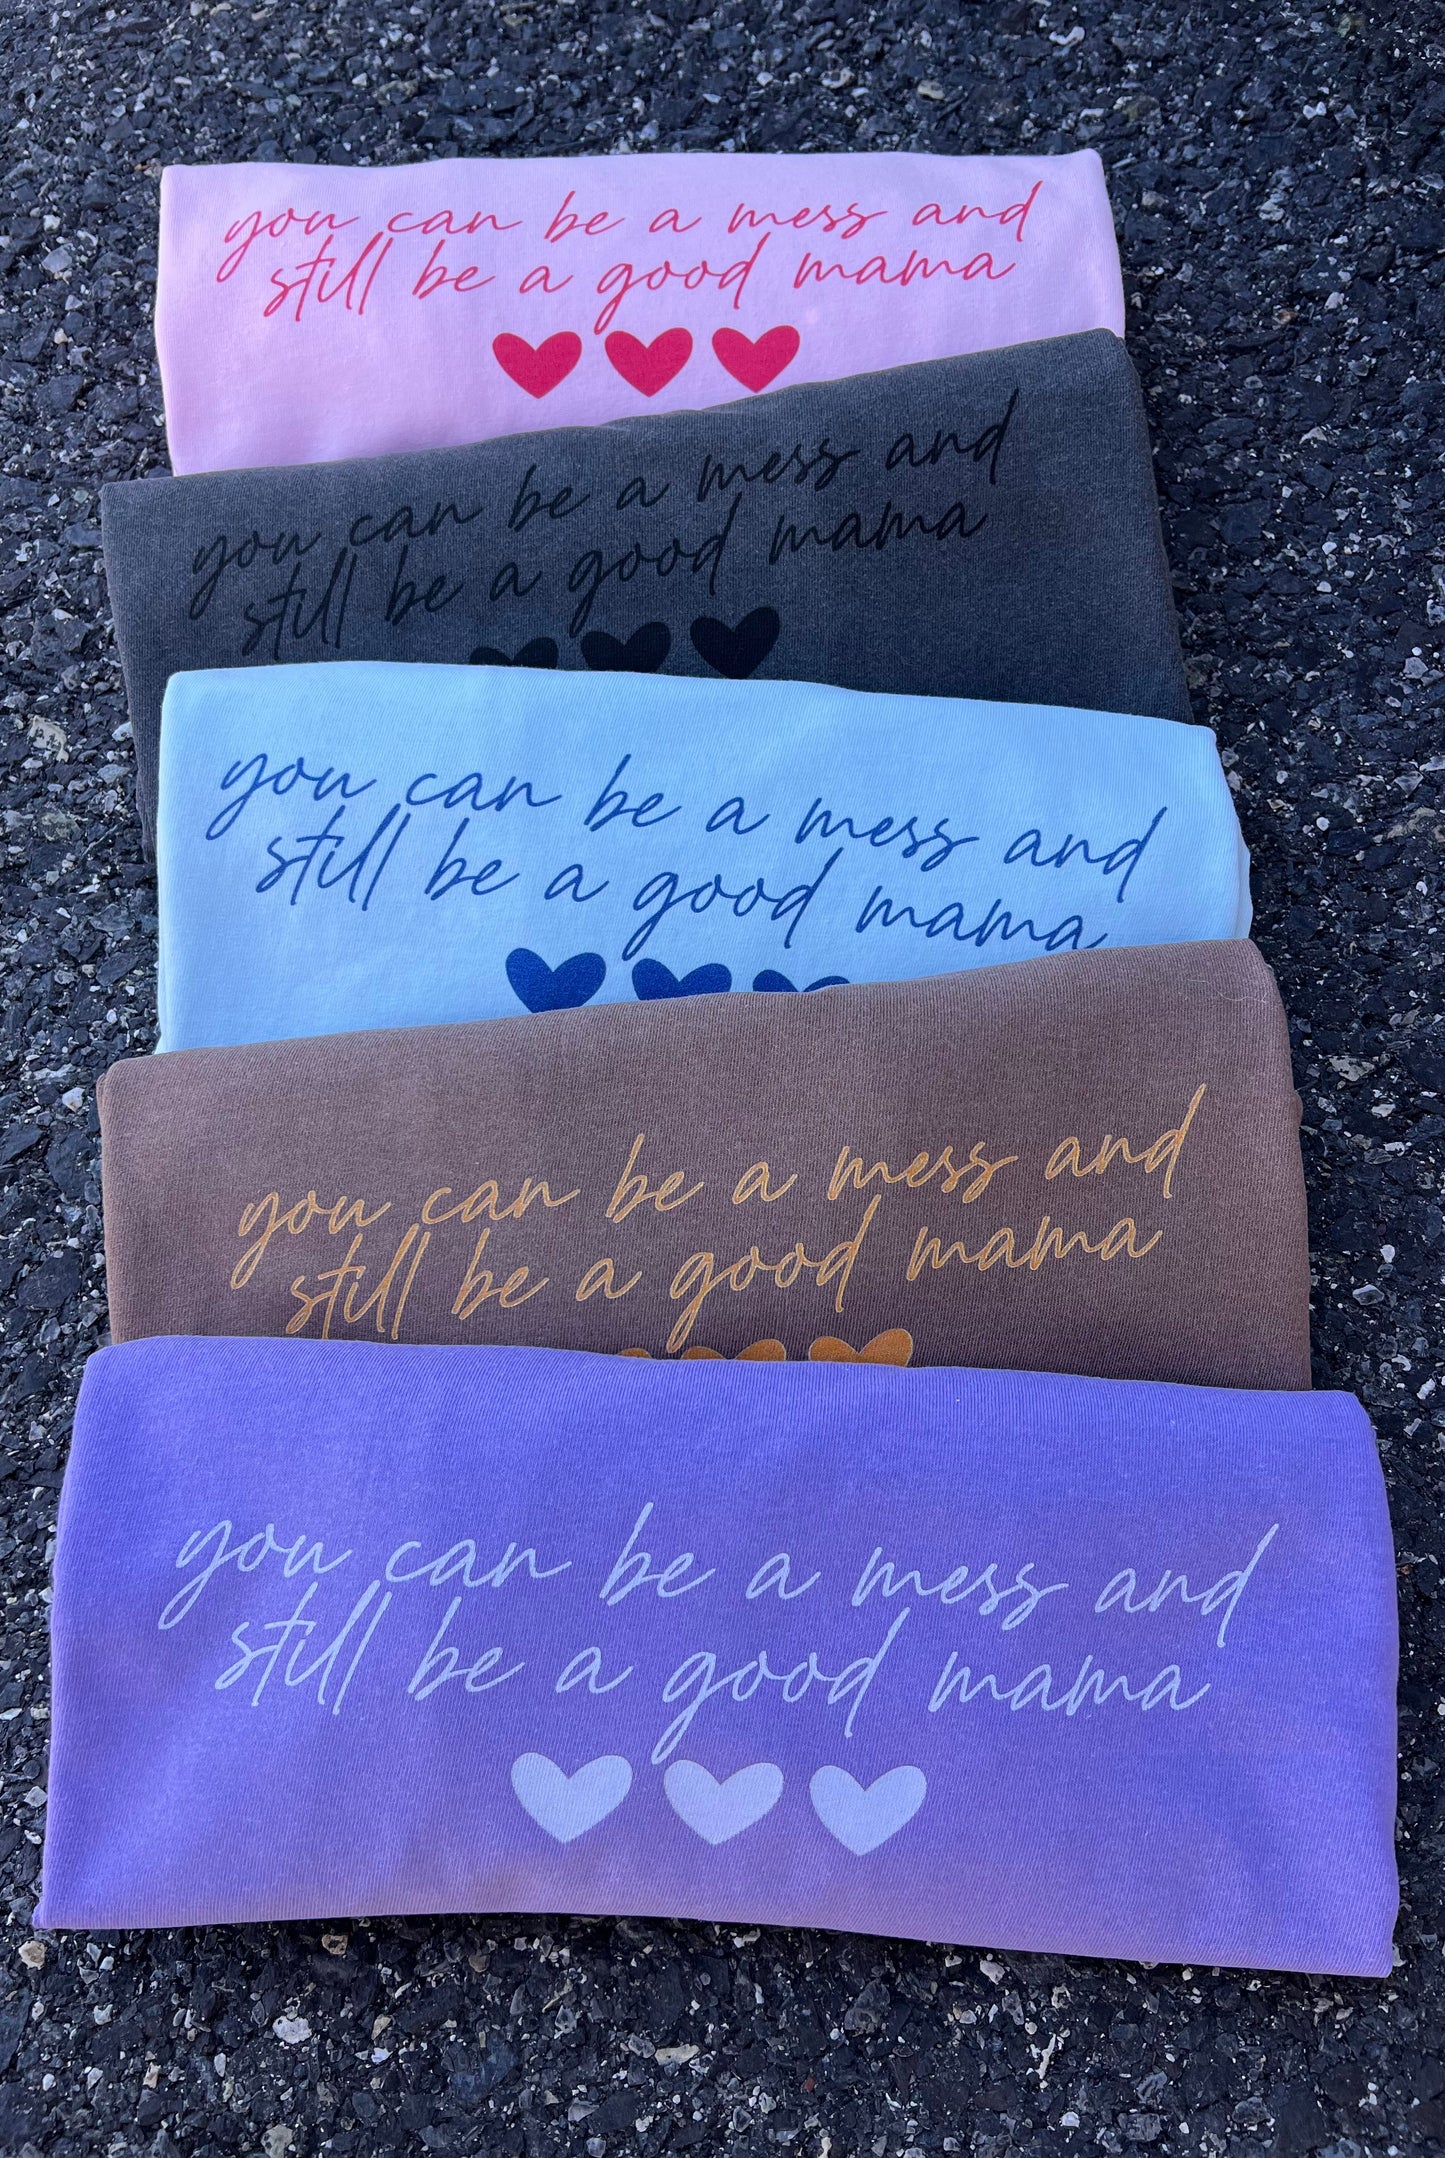 you can be a mess and
still be a good mama
you can be a mess and
still be a good mama
you can be a mess and
still be a good mama
you can be a mess and
still be a good mama
you can be a mess and
still be a good mama